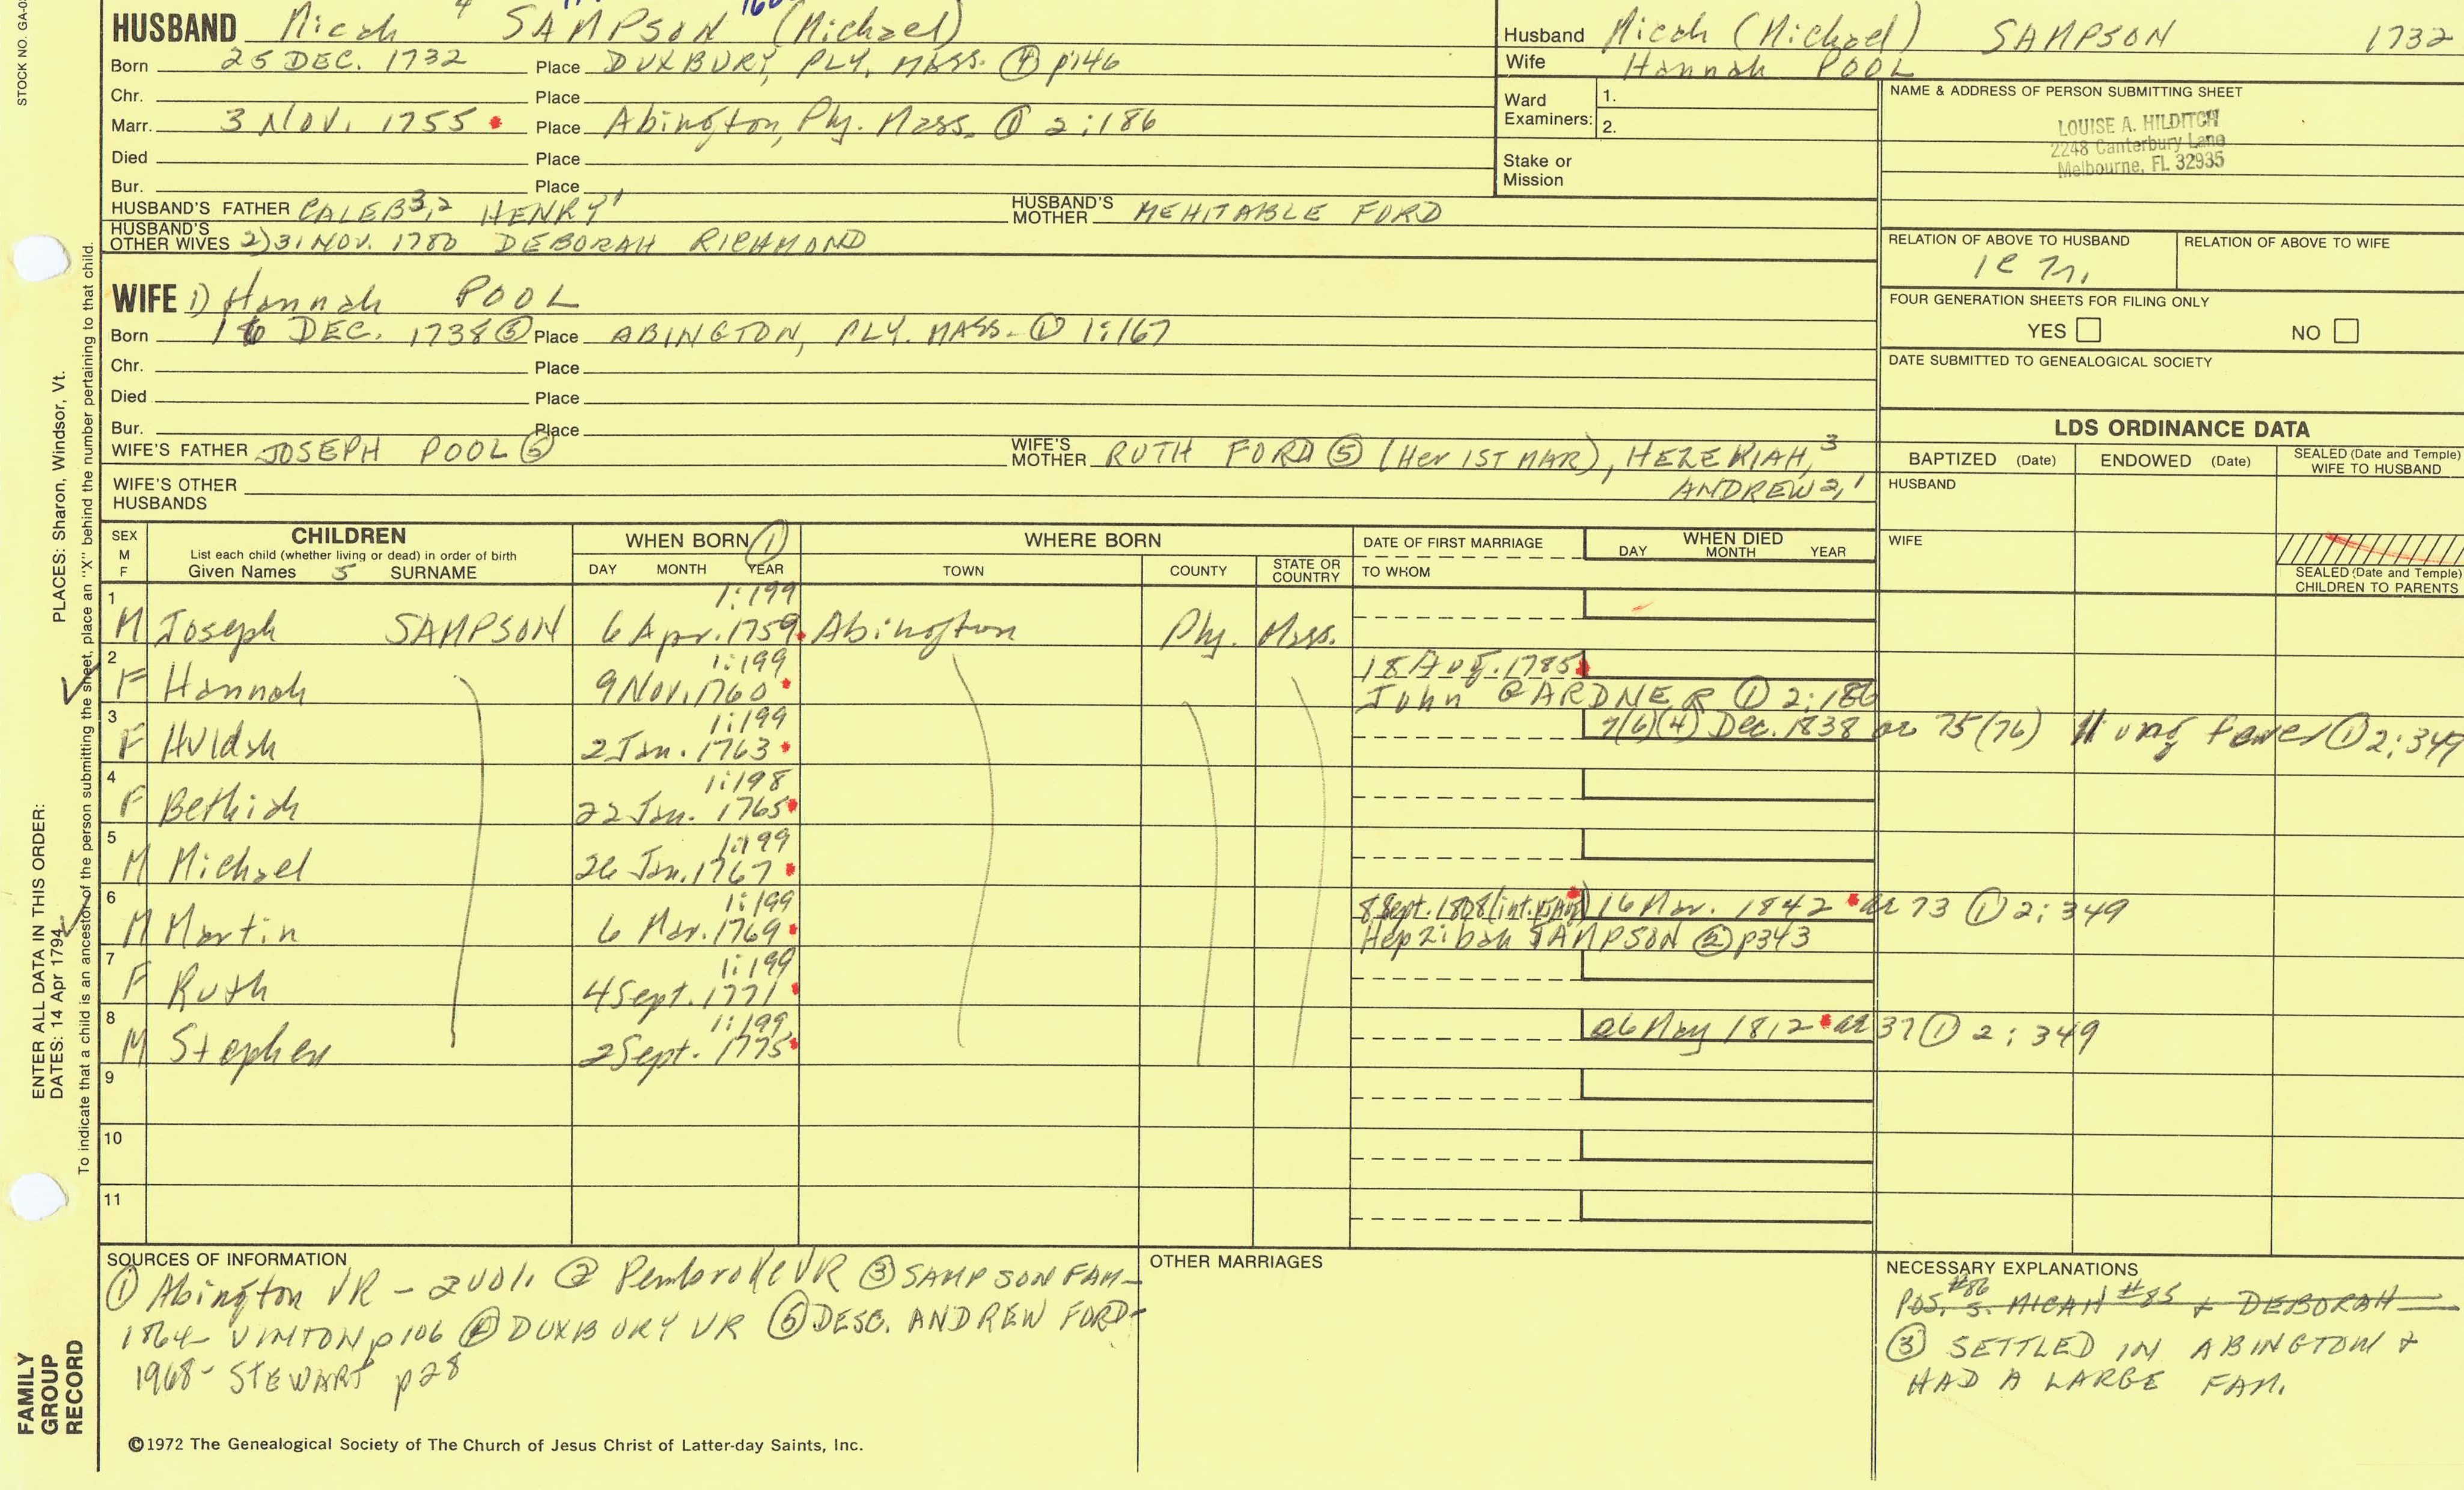 STOCK NO. GA-0
HUSBAND Micah 4 SAMPSON (Michael)
Born 25 DEC. 1732 Place DUXBURY, PLY. MASS. ④ p146
Chr. Place
Marr. 3 NOV. 1755 Place Abington, Ply. Mass. ① 2:186
Died Place
Bur. Place
HUSBAND'S FATHER CALEB3,2 HENRY1 HUSBAND'S MOTHER MEHITABLE FORD
HUSBAND'S OTHER WIVES 2) 31 NOV. 1780 DEBORAH RICHMOND
Husband Micah (Michael) SAMPSON 1732
Wife Hannah POOL
Ward Examiners: 1.
2.
Stake or Mission
NAME & ADDRESS OF PERSON SUBMITTING SHEET
LOUISE A. HILDITCH
2248 Canterbury Lane
Melbourne, FL 32935
RELATION OF ABOVE TO HUSBAND RELATION OF ABOVE TO WIFE
FOUR GENERATION SHEETS FOR FILING ONLY
YES NO
DATE SUBMITTED TO GENEALOGICAL SOCIETY
WIFE 1) Hannah POOL
Born 16 DEC. 1738 ⑤ Place ABINGTON, PLY. MASS. ① 1:167
Chr. Place
Died Place
Bur. Place
WIFE'S FATHER JOSEPH POOL ⑤ WIFE'S MOTHER RUTH FORD ⑤ (Her 1ST MAR), HEZEKIAH,3
ANDREW2,1
WIFE'S OTHER HUSBANDS
LDS ORDINANCE DATA
BAPTIZED (Date) ENDOWED (Date) SEALED (Date and Temple) WIFE TO HUSBAND
HUSBAND
WIFE
SEALED (Date and Temple) CHILDREN TO PARENTS
SEX M F CHILDREN List each child (whether living or dead) in order of birth Given Names 5 SURNAME
WHEN BORN ① DAY MONTH YEAR
WHERE BORN TOWN COUNTY STATE OR COUNTRY
DATE OF FIRST MARRIAGE TO WHOM
WHEN DIED DAY MONTH YEAR
1 1:199
M Joseph SAMPSON 6 Apr. 1759 Abington Ply. Mass.
2 1:199 18 Aug. 1785
F Hannah 9 Nov. 1760 John GARDNER ① 2:186
3 1:199 7(6)(4) Dec. 1838 ae 75(76) lung fever ① 2:349
F Huldah 2 Jan. 1763
4 1:198
F Bethiah 22 Jan. 1765
5 1:199
M Michael 26 Jan. 1767
6 1:199 8 Sept. 1808 (int. 16 Mar. 1842 ae 73 ① 2:349
M Martin 6 Mar. 1769 Hepzibah SAMPSON ② p343
7 1:199
F Ruth 4 Sept. 1771
8 1:199 26 May 1812 ae 37 ① 2:349
M Stephen 2 Sept. 1775
9
10
11
SOURCES OF INFORMATION
① Abington VR - 2 vol. ② Pembroke VR ③ SAMPSON FAM-
1864- VINTON p106 ④ DUXBURY VR ⑤ DESC. ANDREW FORD-
1968- STEWART p28
OTHER MARRIAGES
NECESSARY EXPLANATIONS
#86
POS. S. MICAH #85 + DEBORAH
③ SETTLED IN ABINGTON +
HAD A LARGE FAM.
©1972 The Genealogical Society of The Church of Jesus Christ of Latter-day Saints, Inc.
FAMILY GROUP RECORD
ENTER ALL DATA IN THIS ORDER:
DATES: 14 Apr 1794
PLACES: Sharon, Windsor, Vt.
To indicate that a child is an ancestor of the person submitting the sheet, place an "X" behind the number pertaining to that child.